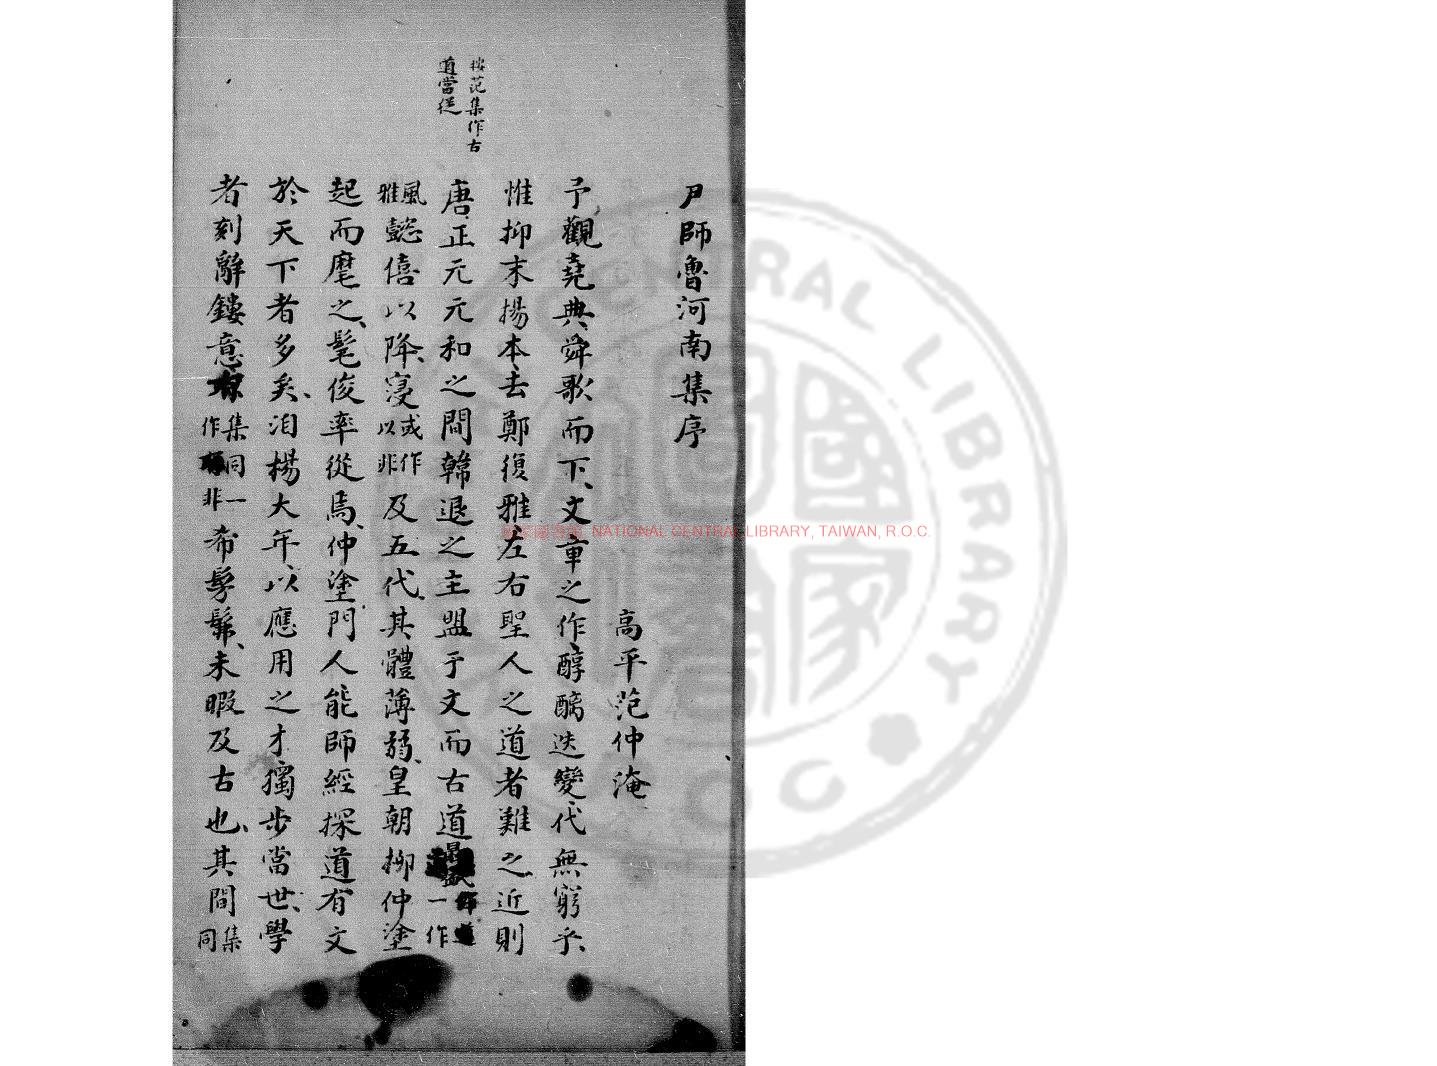 尹師魯河南集序
高平范仲淹
予觀堯典舜歌而下文章之作醇醨迭變代無窮乎
惟抑末揚本去鄭復雅左右聖人之道者難之近則
按范集作古
道當從
唐正元元和之間韓退之主盟于文而古道最盛一作
風雅懿僖以降寖或作以非及五代其體薄弱皇朝柳仲塗
起而麾之髦俊率從焉仲塗門人能師經探道有文
於天下者多矣洎楊大年以應用之才獨步當世學
者刻辭鏤意集同一作非希髣髴未暇及古也其間集同
國家圖書館 NATIONAL CENTRAL LIBRARY, TAIWAN, R.O.C.
CENTRAL LIBRARY
R.O.C.
國家